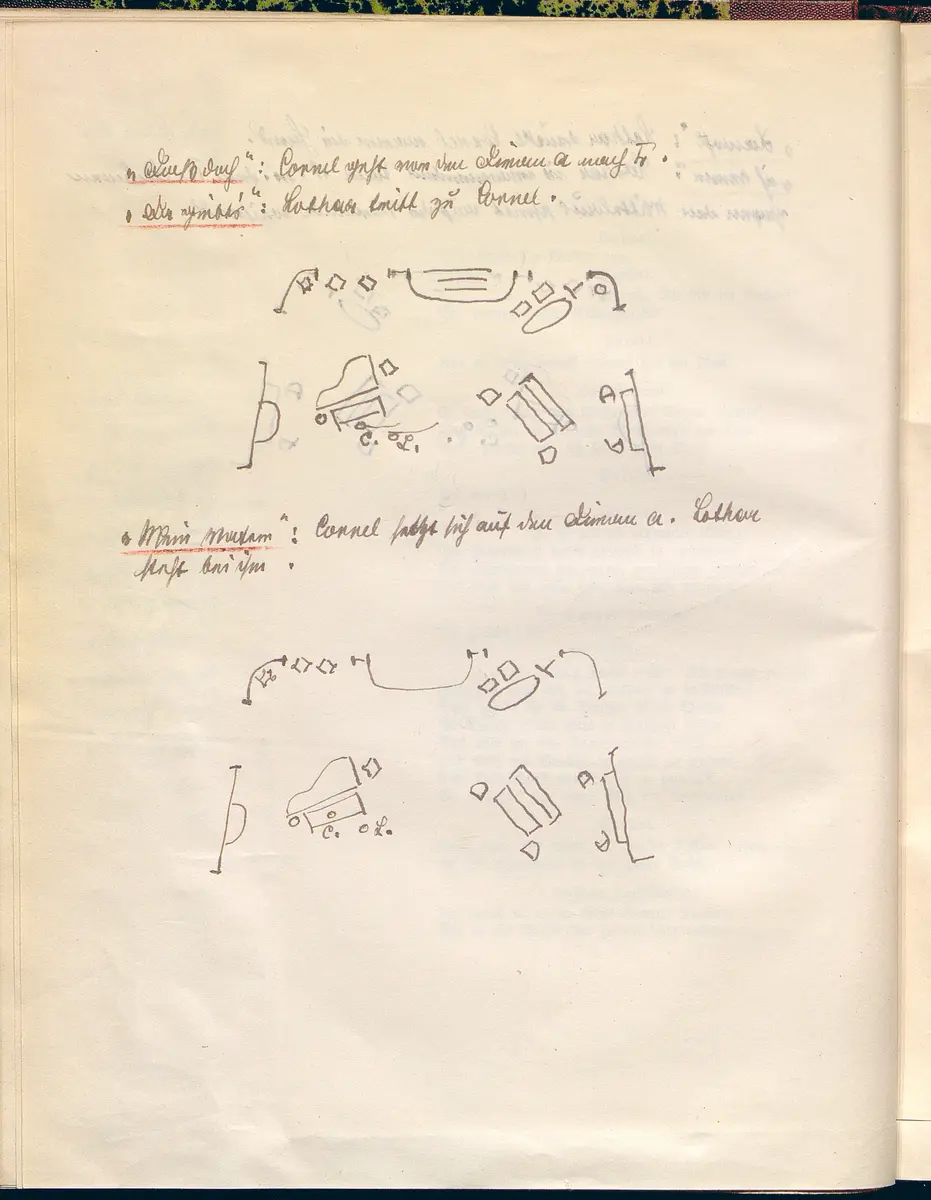 „Duck dich“: Cornel geht vor den Diwan a nach Tr.
„Da gibts“: Lothar tritt zu Cornel.
C. L.
„Mein“: Cornel setzt sich auf den Diwan a. Lothar
steht bei ihm.
C. L.